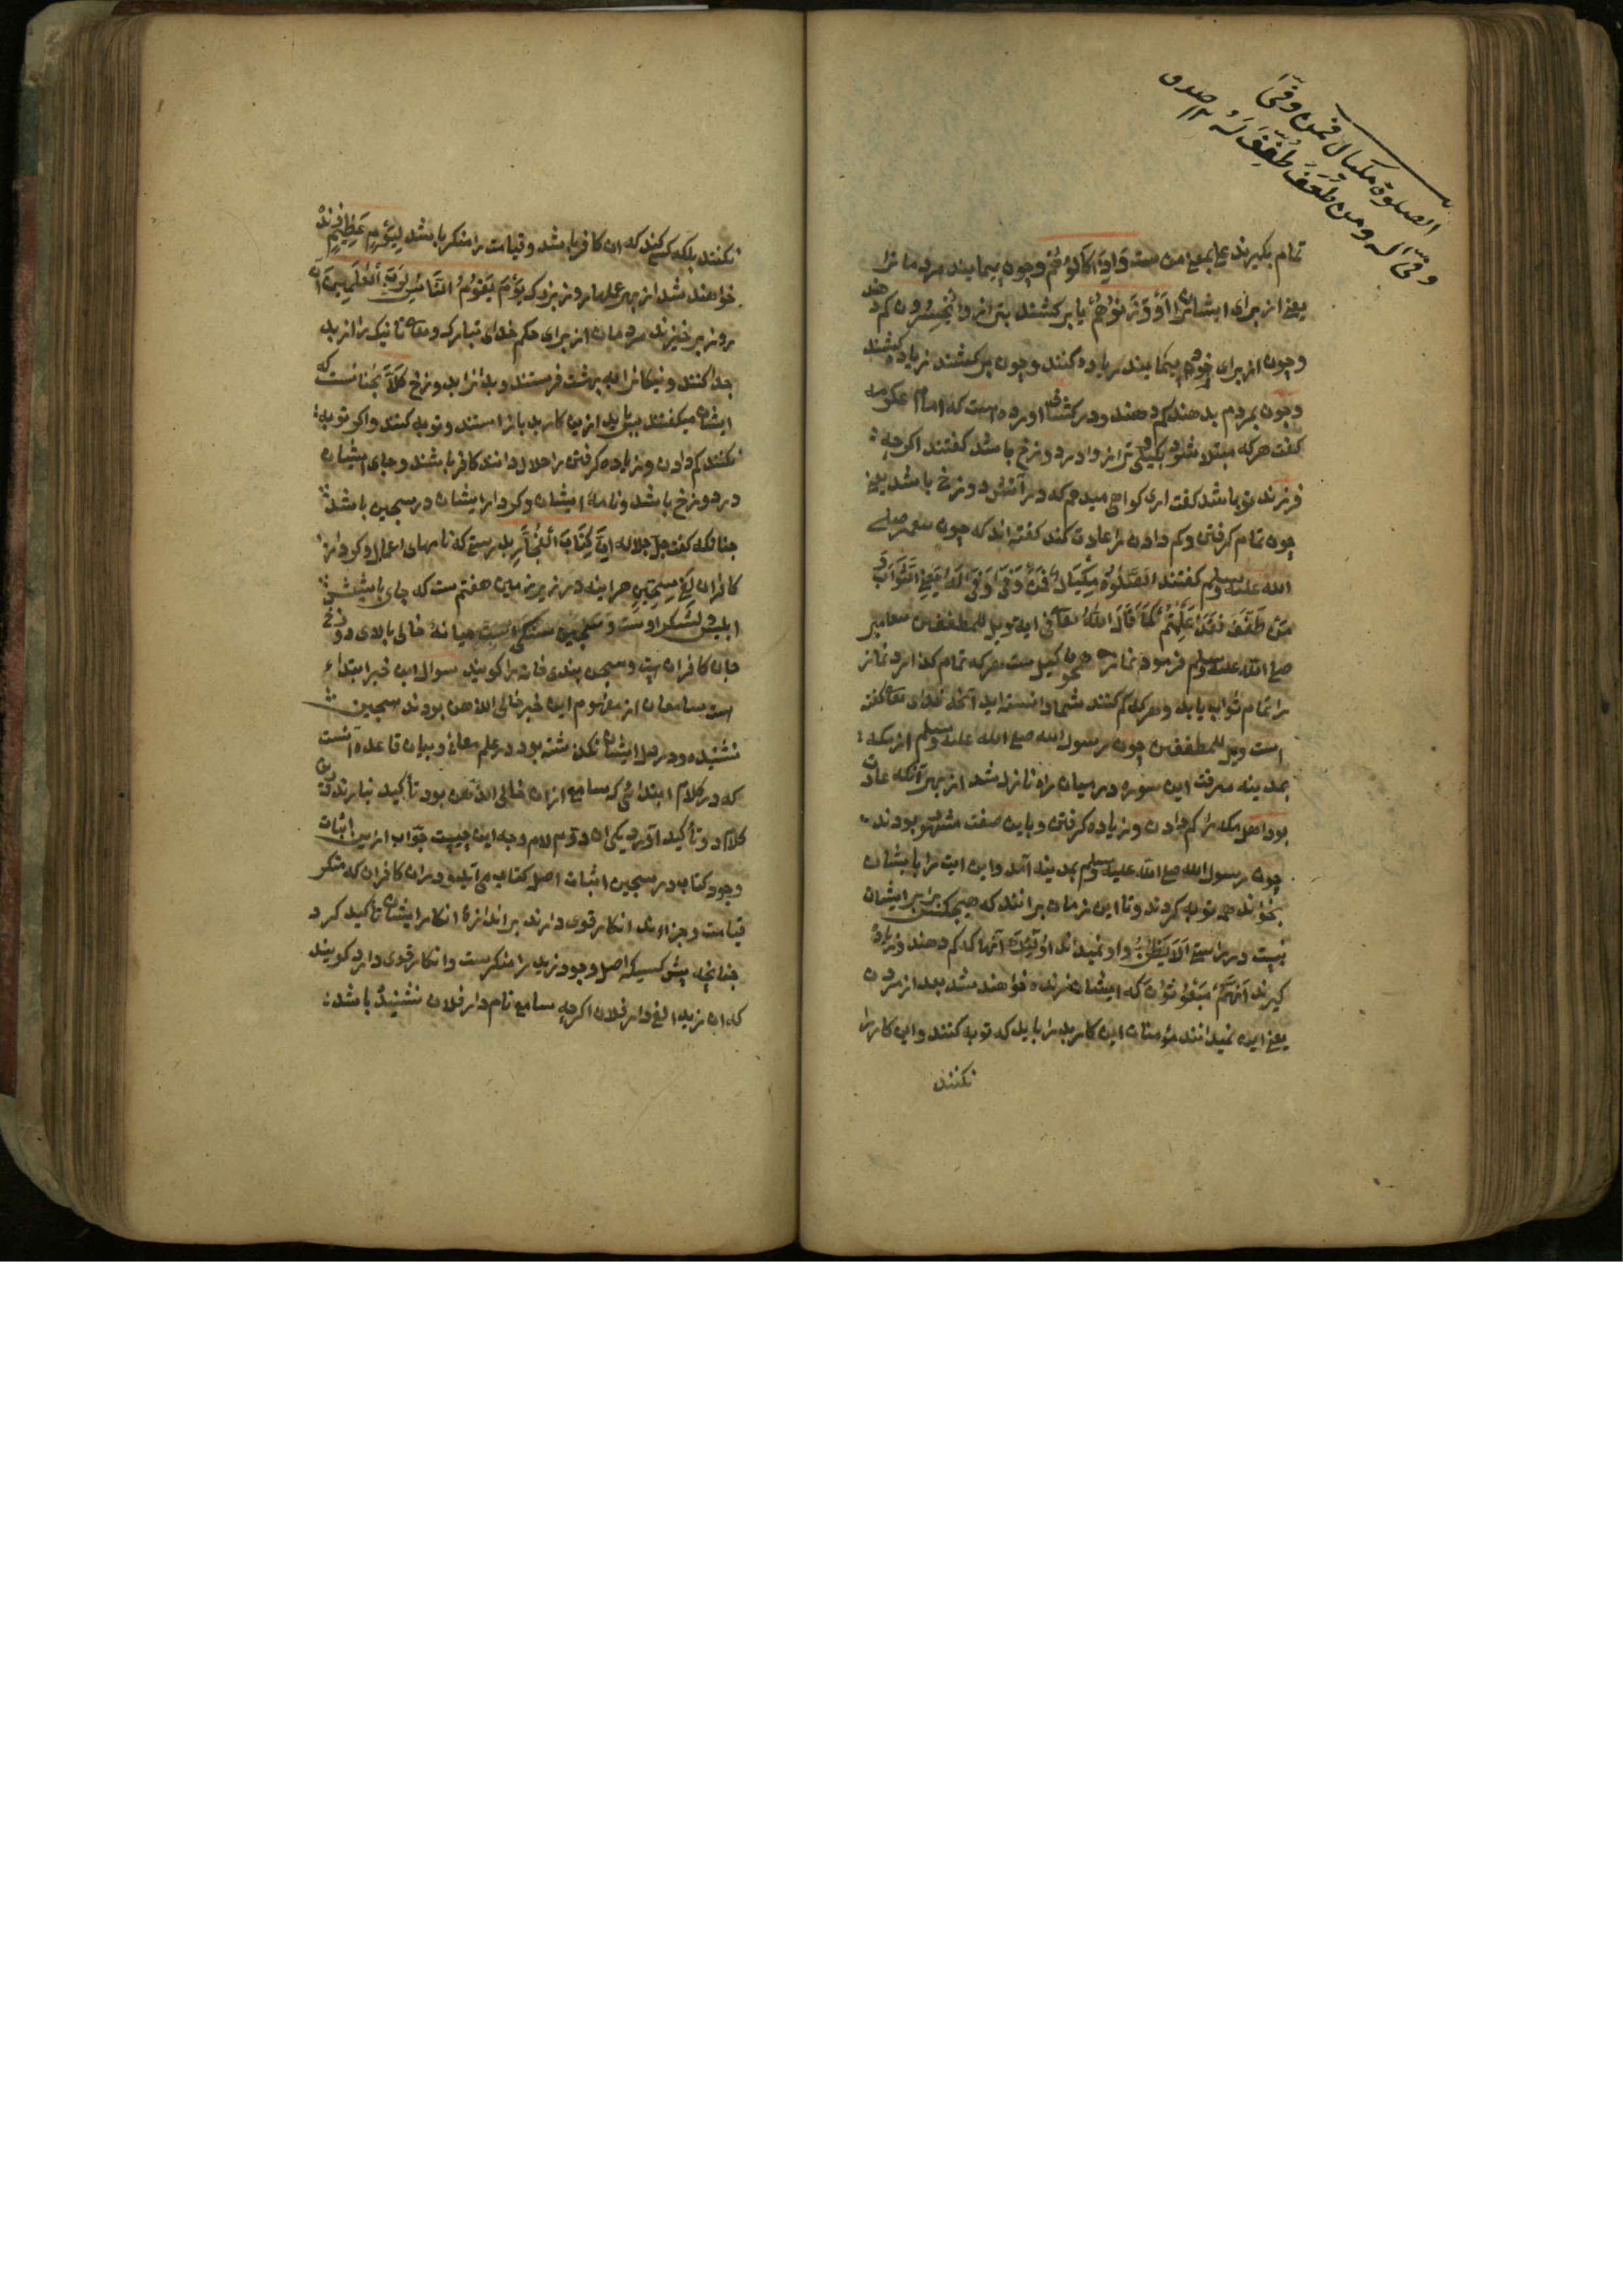 الصلوة مکیال فمن وفّی
وفّی له ومن طفف طفف له
تمام بکیرند علی بمعنی من ست وَاِذَا کَالُوْهُمْ وچون بپیمایند مردمانرا
یعنی از برای ایشان اَوْ وَزَنُوْهُمْ یا برکشند بترازو یُخْسِرُوْنَ کم دهند
وچون از برای خود پیمایند زیاده کنند وچون برکشند زیاده کشند
وچون بمردم بدهند کم دهند ودر کشاف اورده است که امام عکرمه
کفت هرکه مبتلا شود بکیلی وترازو او در دوزخ باشد کفتند اکرچه
فرزند تو باشد کفت اری کواهی میدهم که در آتش دوزخ باشد یعنی
چون تمام کرفتن وکم دادن را عادت کند کفته اند که چون پیغمبر صلی
الله علیه وسلم کفتند الصَّلٰوةُ مِکْیَالٌ فَمَنْ وَفّٰی وُفِّیَ لَهُ یَعْنِی الثَّوَابَ وَ
مَنْ طَفَّفَ فَقَدْ عَلِمْتُمْ مَا قَالَ اللّٰهُ تعالی فی ایة ویل للمطففین پیغامبر
صلی الله علیه وسلم فرمود نماز همچون کیل ست هرکه تمام کذارد نماز
را تمام ثواب یابد وهرکه کم کنند شما دانسته اید آنچه خدای تعالی کفته
است ویل للمطففین چون رسول الله صلی الله علیه وسلم از مکه
بمدینه میرفت این سوره در میان راه نازل شد از بهر آنکه عادت
بود اهل مکه را کم دادن وزیاده کرفتن وباین صفت مشهور بودند
چون رسول الله صلی الله علیه وسلم بمدینه آمد واین ایت را بایشان
بخواند همه توبه کردند وتا این زمان برانند که هیچکس برابر ایشان
نیست در راستی اَلَا یَظُنُّ واو نمیداند اُولٰئِكَ آنها که کم دهند وزیاده
کیرند اَنَّهُمْ مَبْعُوْثُوْنَ که ایشان زنده خواهند شد بعد از مردن
یعنی این نمیدانند مؤمنان این کار بد را باید که توبه کنند واین کار را
نکنند
نکنند بلکه کسی کند که ان کافر باشد وقیامت را منکر باشد لِیَوْمٍ عَظِیْمٍ زنده
خواهند شد از بهر عملها روز بزرک یَوْمَ یَقُوْمُ النَّاسُ لِرَبِّ الْعٰلَمِیْنَ آن
روز برخیزند مردمان از برای حکم خدای تبارک وتعالی تا نیک را از بد
جدا کنند ونیکانرا به بهشت فرستند وبدانرا بدوزخ کَلَّا نچنانست که
ایشان میکفتند بباید ازین کار بد باز استند وتوبه کنند واکر توبه
نکنند کم دادن وزیاده کرفتن را حلال دانند کافر باشند وجای ایشان
در دوزخ باشد ونامهٔ ایشان وکردار ایشان در سجین باشد
چنانکه کفت جل جلاله اِنَّ کِتَابَ الْفُجَّارِ بدرستی که نامهای اعمال وکردار
کافران لَفِیْ سِجِّیْنٍ هراینه در زیر زمین هفتم ست که جای باشش
ابلیس ولشکر اوست وسجین سنکی است میانهٔ خالی بالای دوزخ
جان کافران است وسجن بندی خانه را کویند سوال این خبر ابتداء
است سامعان از مفهوم این خبر خالی الذهن بودند سجین
نشنیده ودر دل ایشان نکذشته بود در علم معانی وبیان قاعده آنست
که در کلام ابتدائی که سامع ازان خالی الذهن بود تأکید نیارند درین
کلام دو تأکید آورد یکی ان دوم لام وجه این چیست جواب ازین اثبات
وجود کتاب در سجین اثبات اصل کتاب می آید ودران کافران که منکر
قیامت وجزاءند انکار قوی دارند براندازهٔ انکار ایشان تأکید کرد
چنانچه پیش کسیکه اصل وجود زید را منکرست وانکار قوی دارد کویند
که ان زیدا لفی دار فلان اکرچه سامع نام دار فلان نشنیده باشد